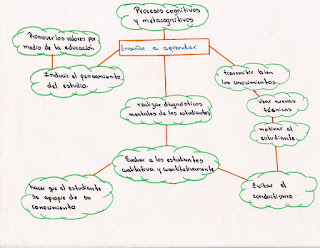 Procesos cognitivos
y metacognitivos
Promover los valores por
medio de la educación
Enseñar a aprender
Inducir el pensamiento
del estudio.
transmitir bien
los conocimientos
realizar diagnósticos
mentales de los estudiantes
Usar nuevas
técnicas
motivar al
estudiante
Evaluar a los estudiantes
cualitativa y cuantitativamente
hacer que el estudiante
se apropie de su
conocimiento
Evitar el
conductismo